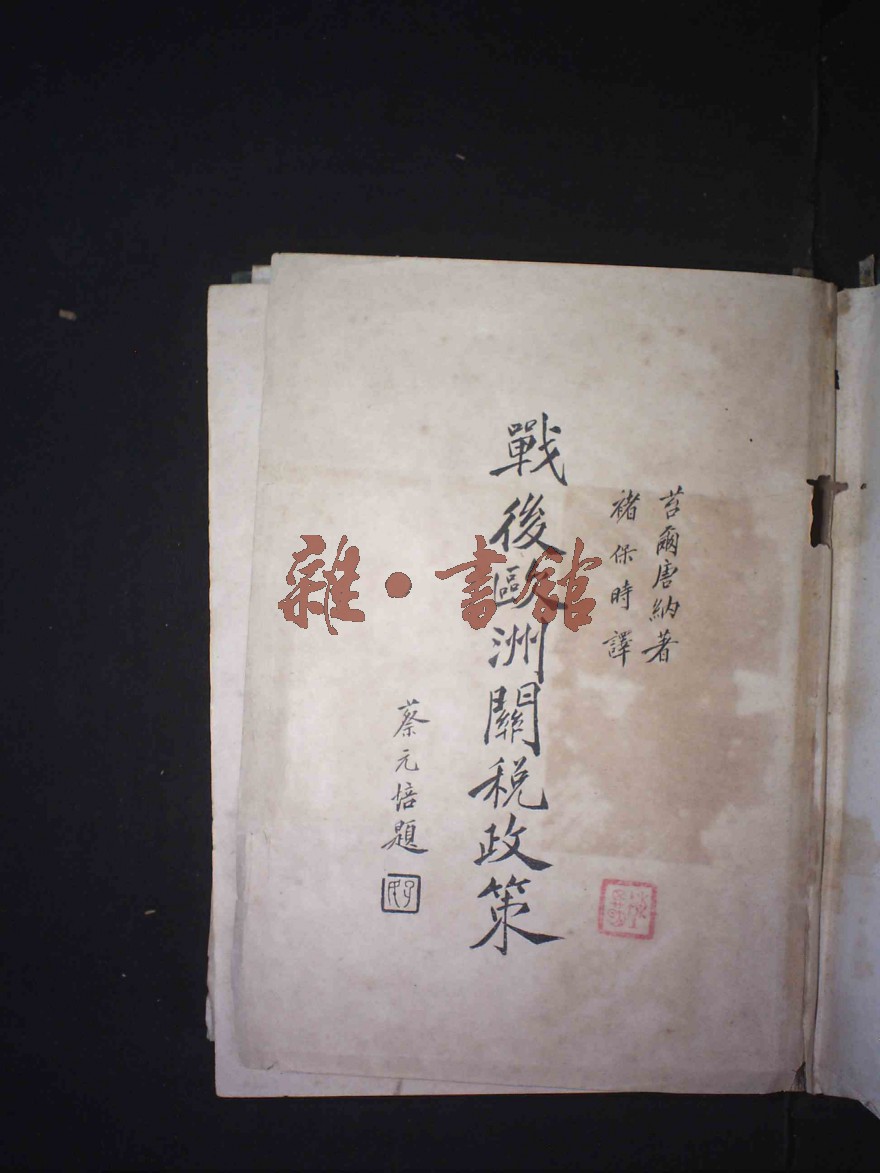 苔爾唐納著
褚保時譯
戰後歐洲關稅政策
蔡元培題
雜·書館